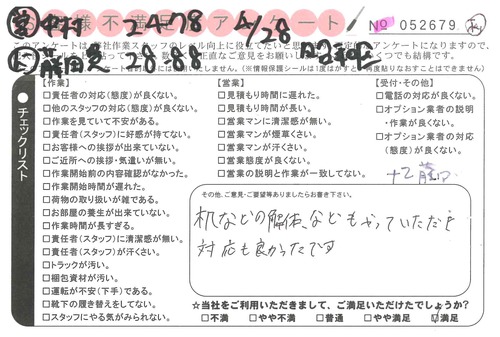 営 中村 2478 4/28
お客様不満足度アンケート
No 052679
このアンケートは弊社作業スタッフのレベル向上に役立てたいと思
アンケートになりますので、
正直なご意見をお願い
つでも結構です。
(※情報保護シールは1度はがすと再度貼りなおすことはできません)
チェックリスト
【作業】
□責任者の対応(態度)が良くない。
□他のスタッフの対応(態度)が良くない。
□作業を見ていて不安がある。
□責任者(スタッフ)に好感が持てない。
□お客様への挨拶が出来ていない。
□ご近所への挨拶・気遣いが無い。
□作業開始前の内容確認がなかった。
□作業開始時間が遅れた。
□荷物の取り扱いが雑である。
□お部屋の養生が出来ていない。
□作業時間が長すぎる。
□責任者(スタッフ)に清潔感が無い。
□責任者(スタッフ)が汗くさい。
□トラックが汚い。
□梱包資材が汚い。
□運転が不安(下手)である。
□靴下の履き替えをしてない。
□スタッフにやる気がみられない。
【営業】
□見積もり時間に遅れた。
□見積もり時間が長い。
□営業マンに清潔感が無い。
□営業マンが煙草くさい。
□営業マンが汗くさい。
□営業態度が良くない。
□営業の説明と作業が一致してない。
【受付・その他】
□電話の対応が良くない。
□オプション業者の説明
・作業が良くない。
□オプション業者の対応
(態度)が良くない。
その他、ご意見・ご要望等ありましたらお書き下さい。
机などの解体、などもやっていただき
対応も良かったです
☆当社をご利用いただきまして、ご満足いただけたでしょうか?
□不満 □やや不満 □普通 □やや満足 □満足